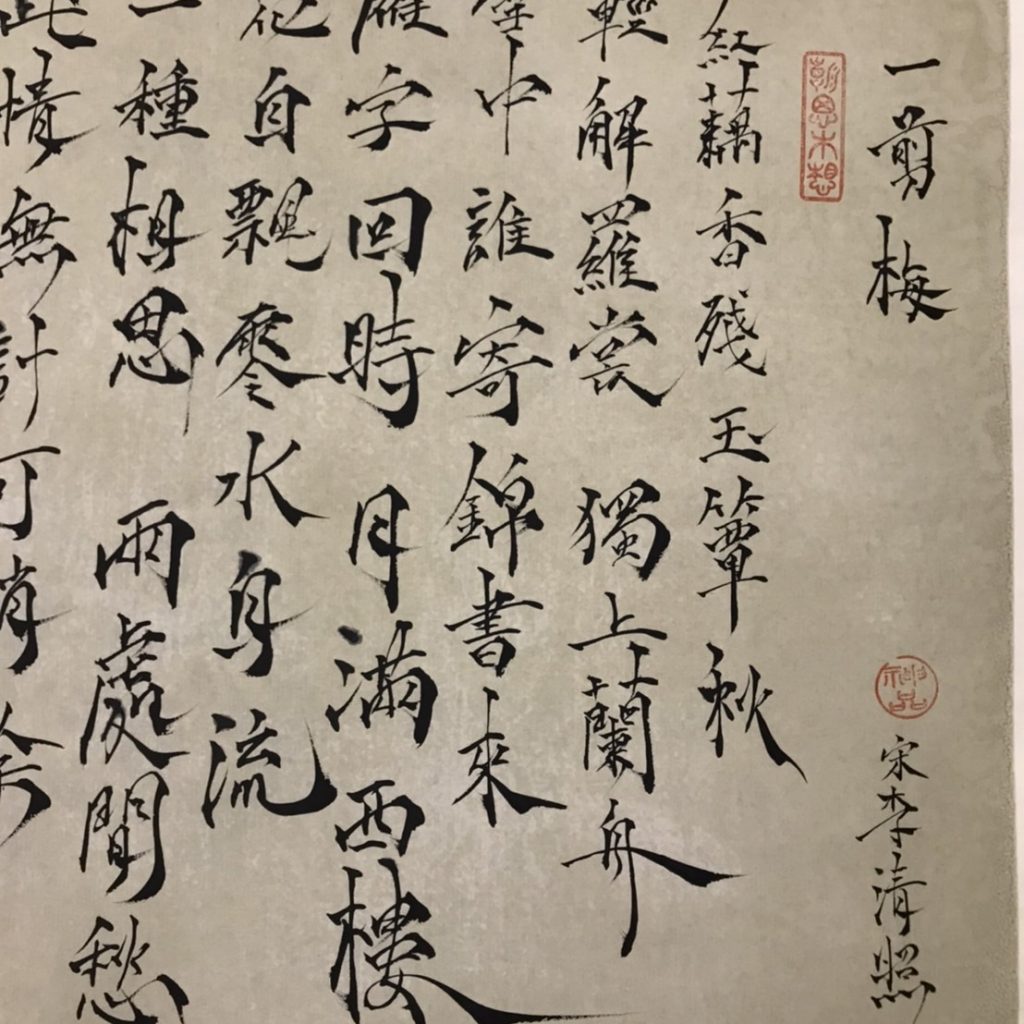 一剪梅
宋李清照
紅藕香殘玉簟秋
輕解羅裳 獨上蘭舟
雲中誰寄錦書來
雁字回時 月滿西樓
花自飄零水身流
一種相思 兩處閒愁
此情無計可消除